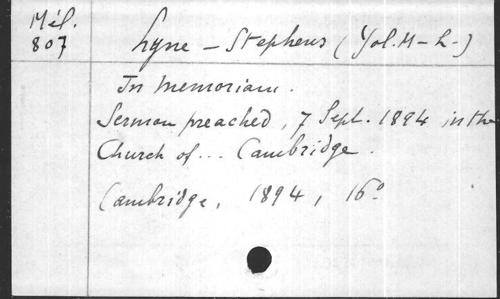 Mél.
807
Lyne - Stephens (Yol. M - L -)
In memoriam.
Sermon preached, 7 Sept. 1894 in the
Church of ... Cambridge.
Cambridge, 1894, 16°